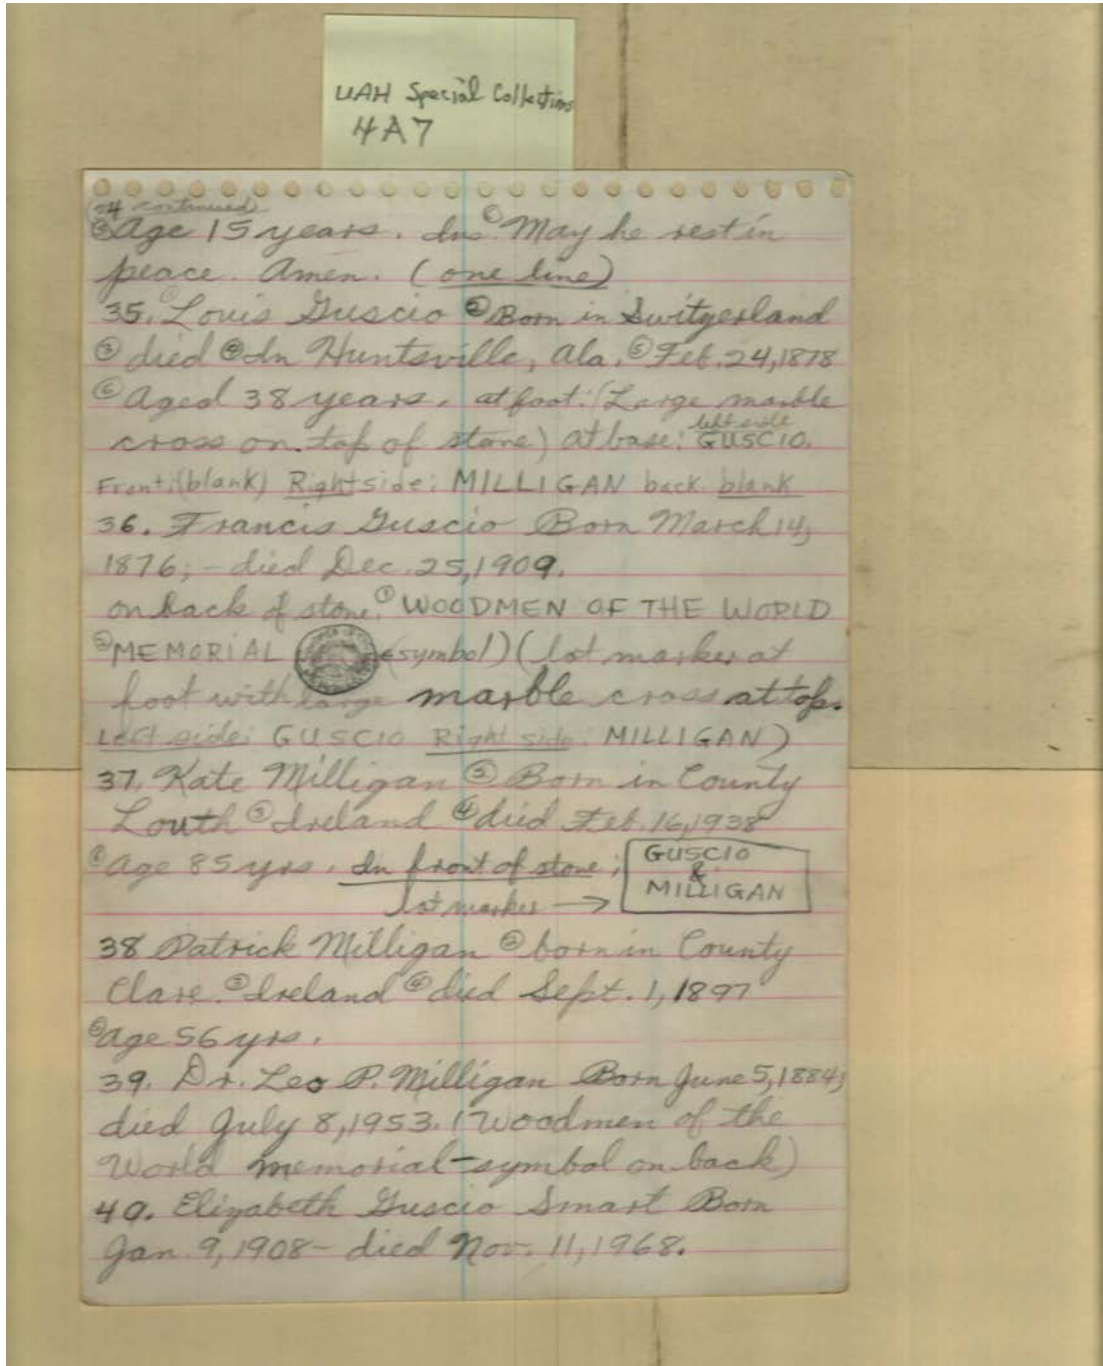 UAH Special Collections
4A7
(34 continued)
⑤Age 15 years. Ins.⑥May he rest in
peace. Amen. (one line)
35. ①Louis Guscio ②Born in Switzerland
③died ④In Huntsville, Ala. ⑤Feb. 24, 1878
⑥Aged 38 years. at foot: (Large marble
cross on top of stone) at base: left side GUSCIO.
Front: (blank) Right side: MILLIGAN back blank
36. Francis Guscio Born March 14,
1876; - died Dec. 25, 1909.
on back of stone: ① WOODMEN OF THE WORLD
②MEMORIAL (symbol) (lot marker at
foot with large marble cross at top.
Left side: GUSCIO Right side: MILLIGAN)
37. Kate Milligan ② Born in County
Louth ③ Ireland ④ died Feb. 16, 1938
⑤ age 85 yrs. In front of stone;
lot marker →
GUSCIO
&
MILLIGAN
38 Patrick Milligan ② born in County
Clare. ③ Ireland ④ died Sept. 1, 1897
⑤age 56 yrs.
39. Dr. Leo P. Milligan Born June 5, 1884;
died July 8, 1953. (Woodmen of the
World memorial-symbol on back)
40. Elizabeth Guscio Smart Born
Jan. 9, 1908 - died Nov. 11, 1968.